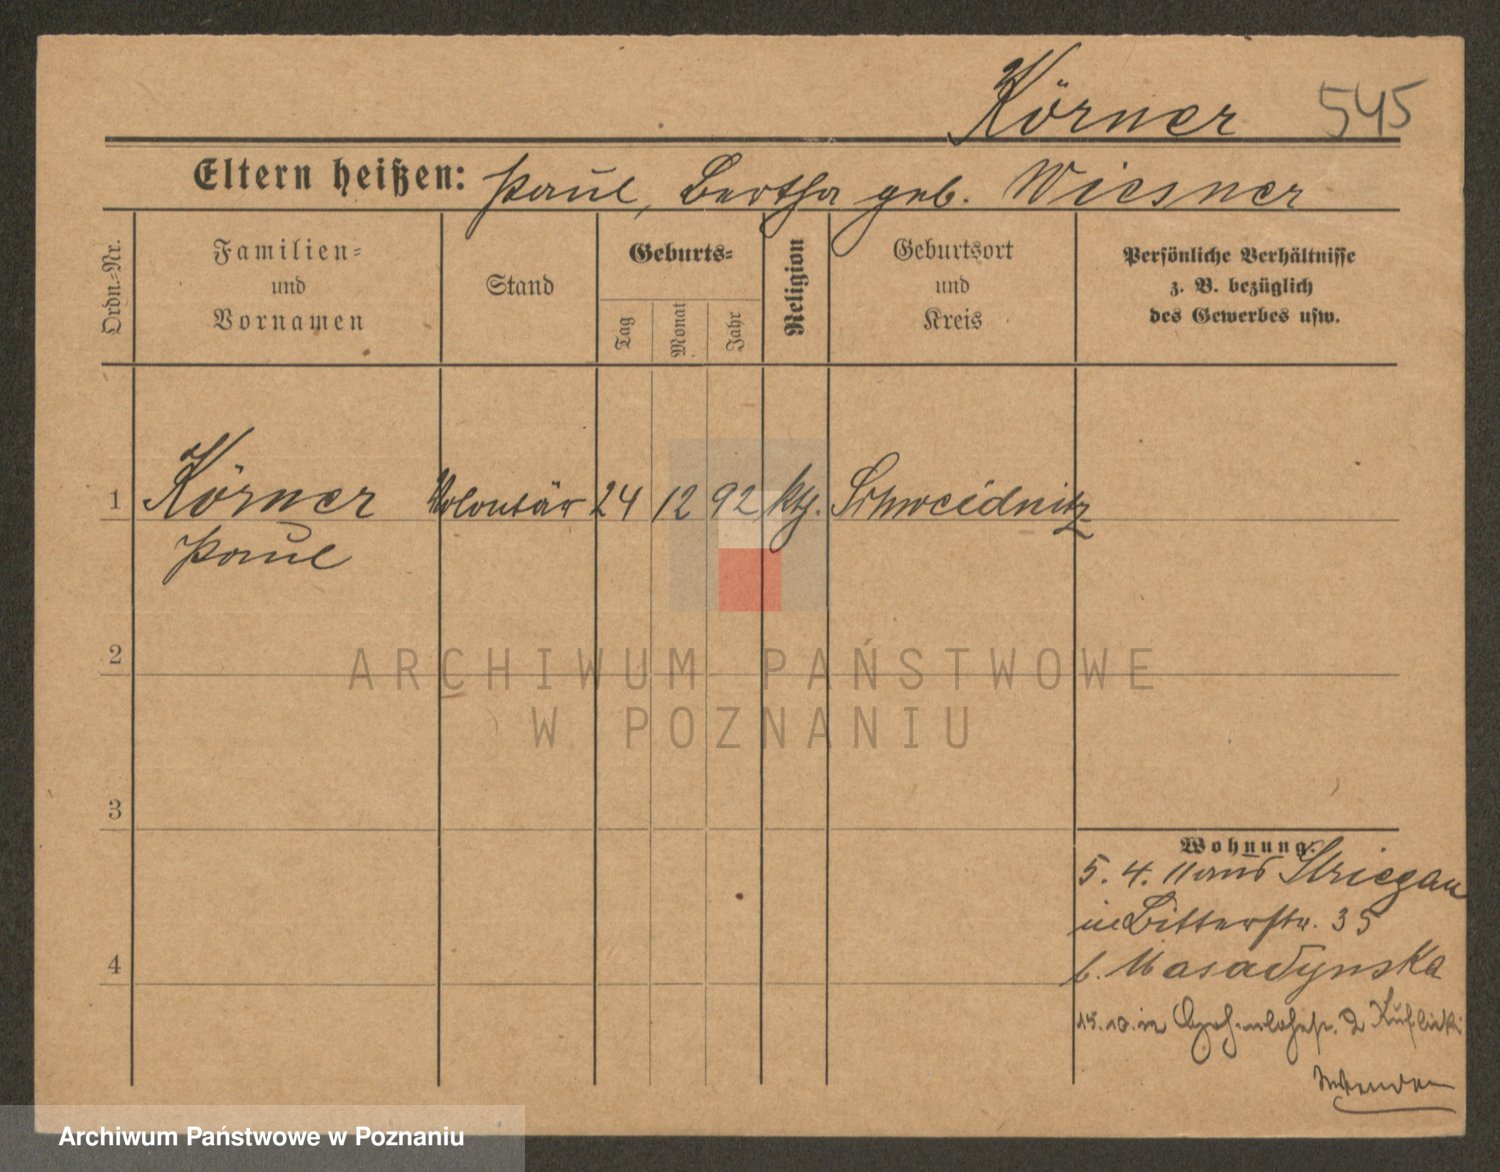 Körner 545
Eltern heißen: Paul, Bertha geb. Wiesner
Ordn.-Nr.
Familien-
und
Vornamen
Stand
Geburts-
Tag
Monat
Jahr
Religion
Geburtsort
und
Kreis
Persönliche Verhältnisse
z. B. bezüglich
des Gewerbes usw.
1 Körner Volontär 24 12 92 kth. Schweidnitz
Paul
2
ARCHIWUM PAŃSTWOWE
W POZNANIU
3
Wohnung:
5. 4. 11 aus Striegau
in Bitterstr. 35
b.
4
15. 10. in 2
wenden
Archiwum Państwowe w Poznaniu